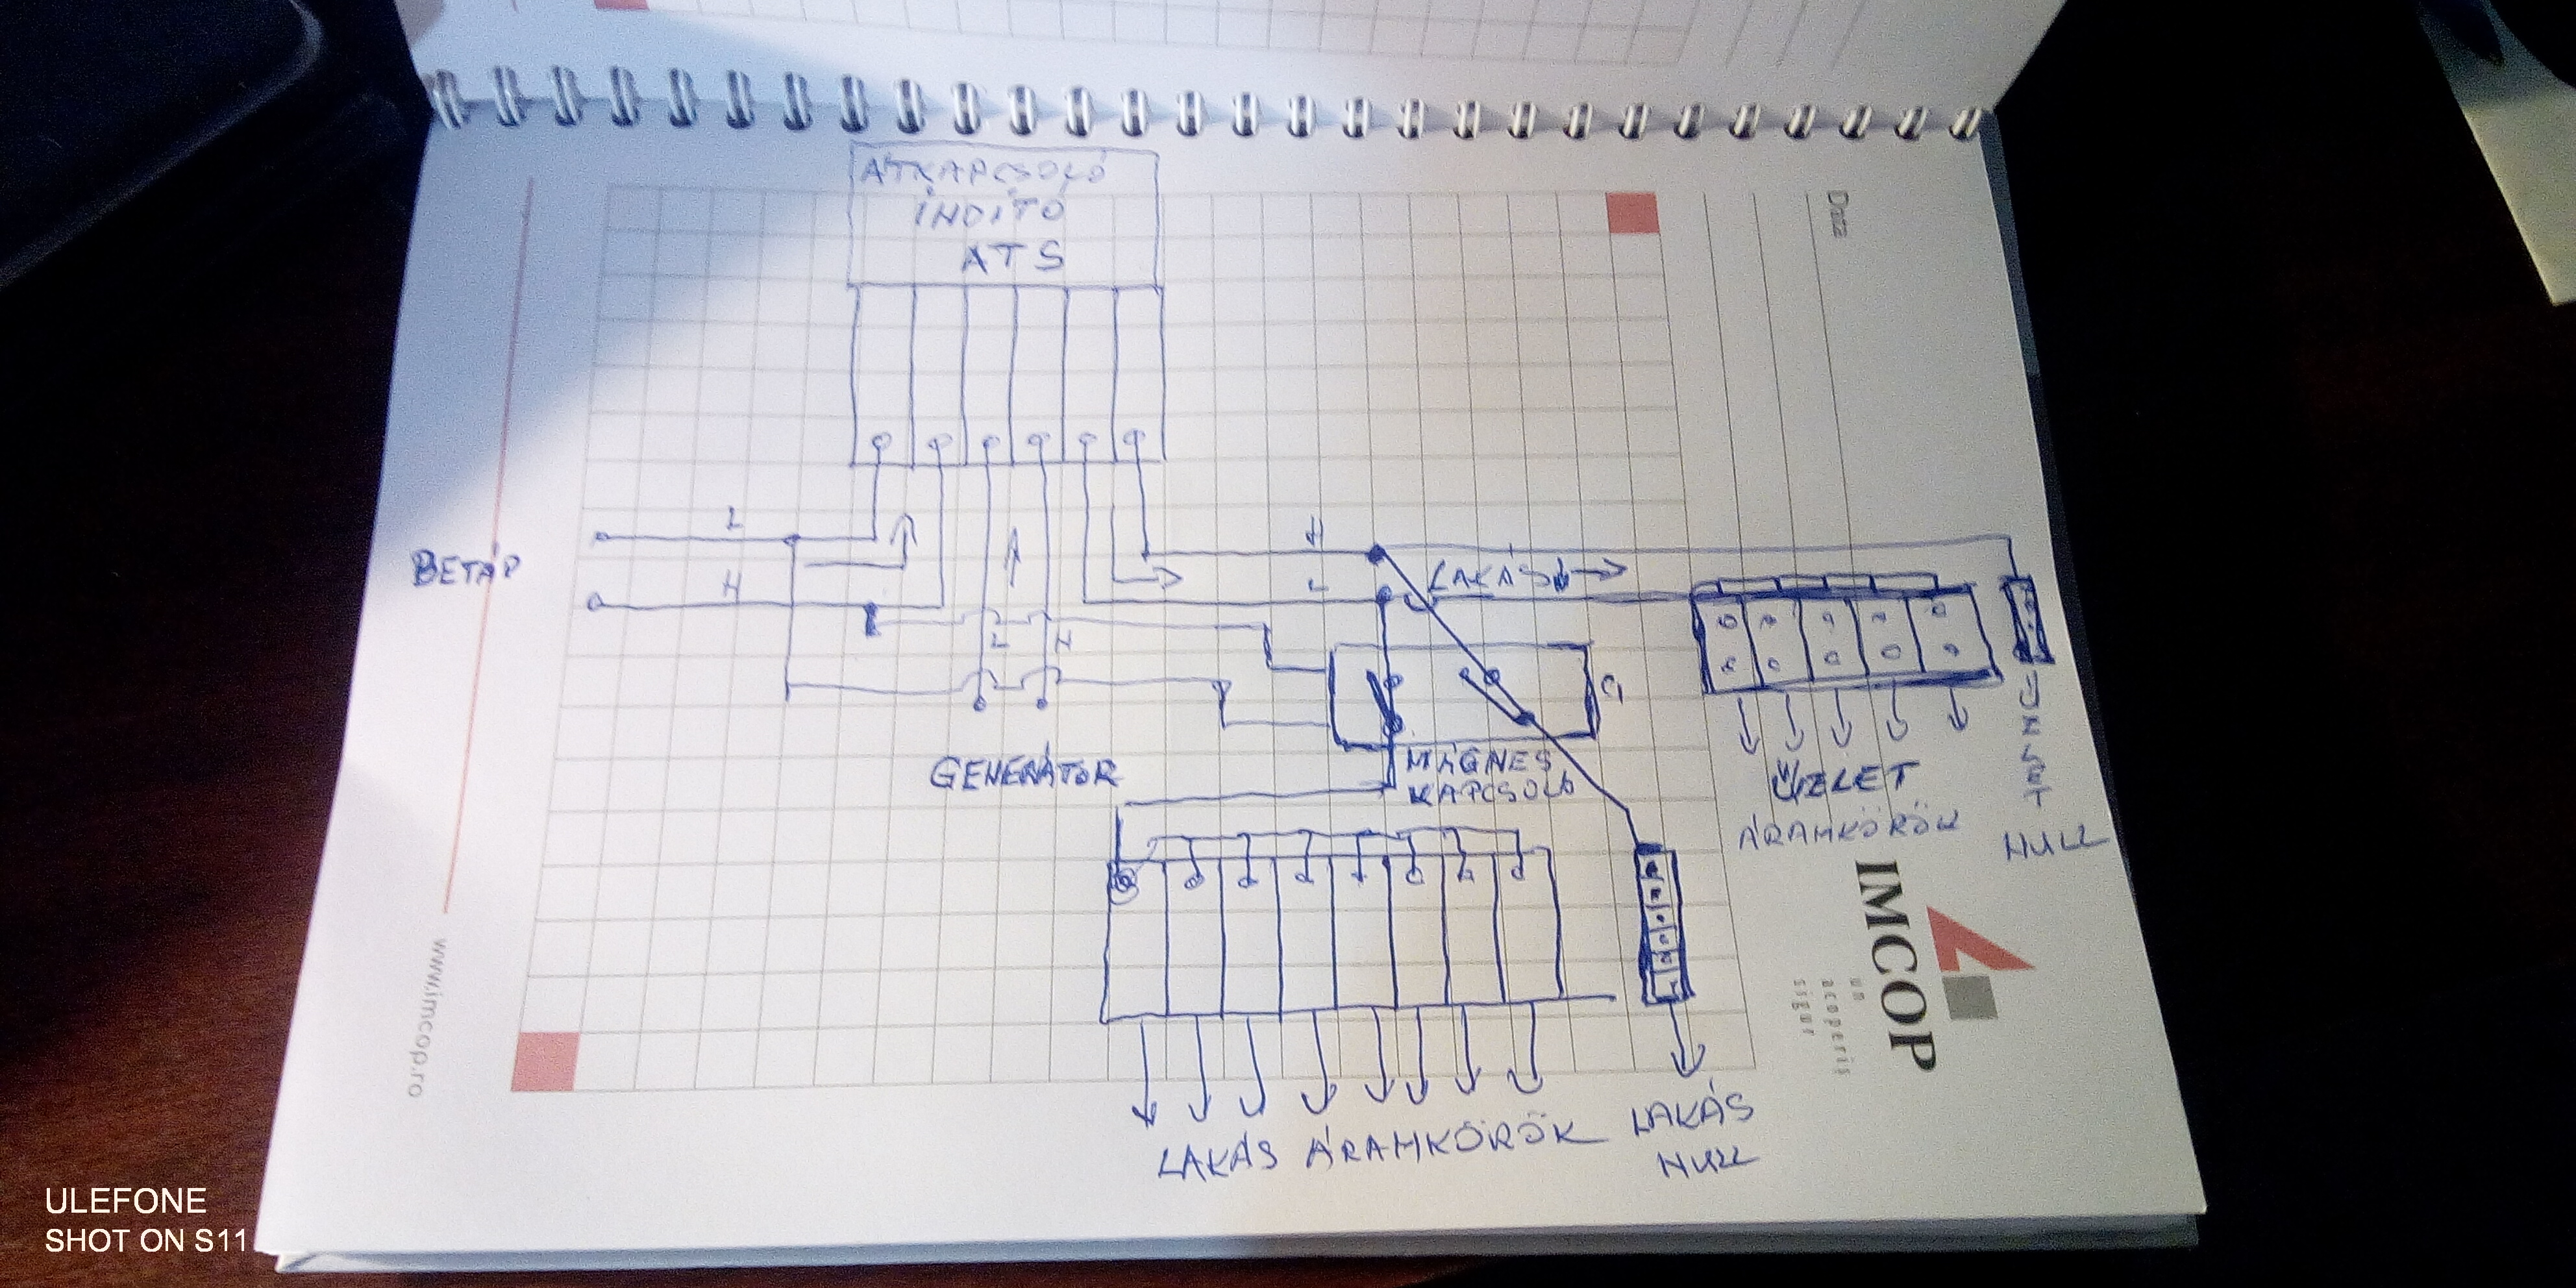 ÁTKAPCSOLÓ
ÍNDÍTÓ
ATS
Data
BETÁP
L
N
N
L
LAKÁS
L
N
GENERÁTOR
MÁGNES
KAPCSOLÓ
ÜZLET
ÁRAMKÖRÖK
ÜZLET
NULL
LAKÁS ÁRAMKÖRÖK
LAKÁS
NULL
IMCOP
un
acoperis
sigur
www.imcop.ro
ULEFONE
SHOT ON S11